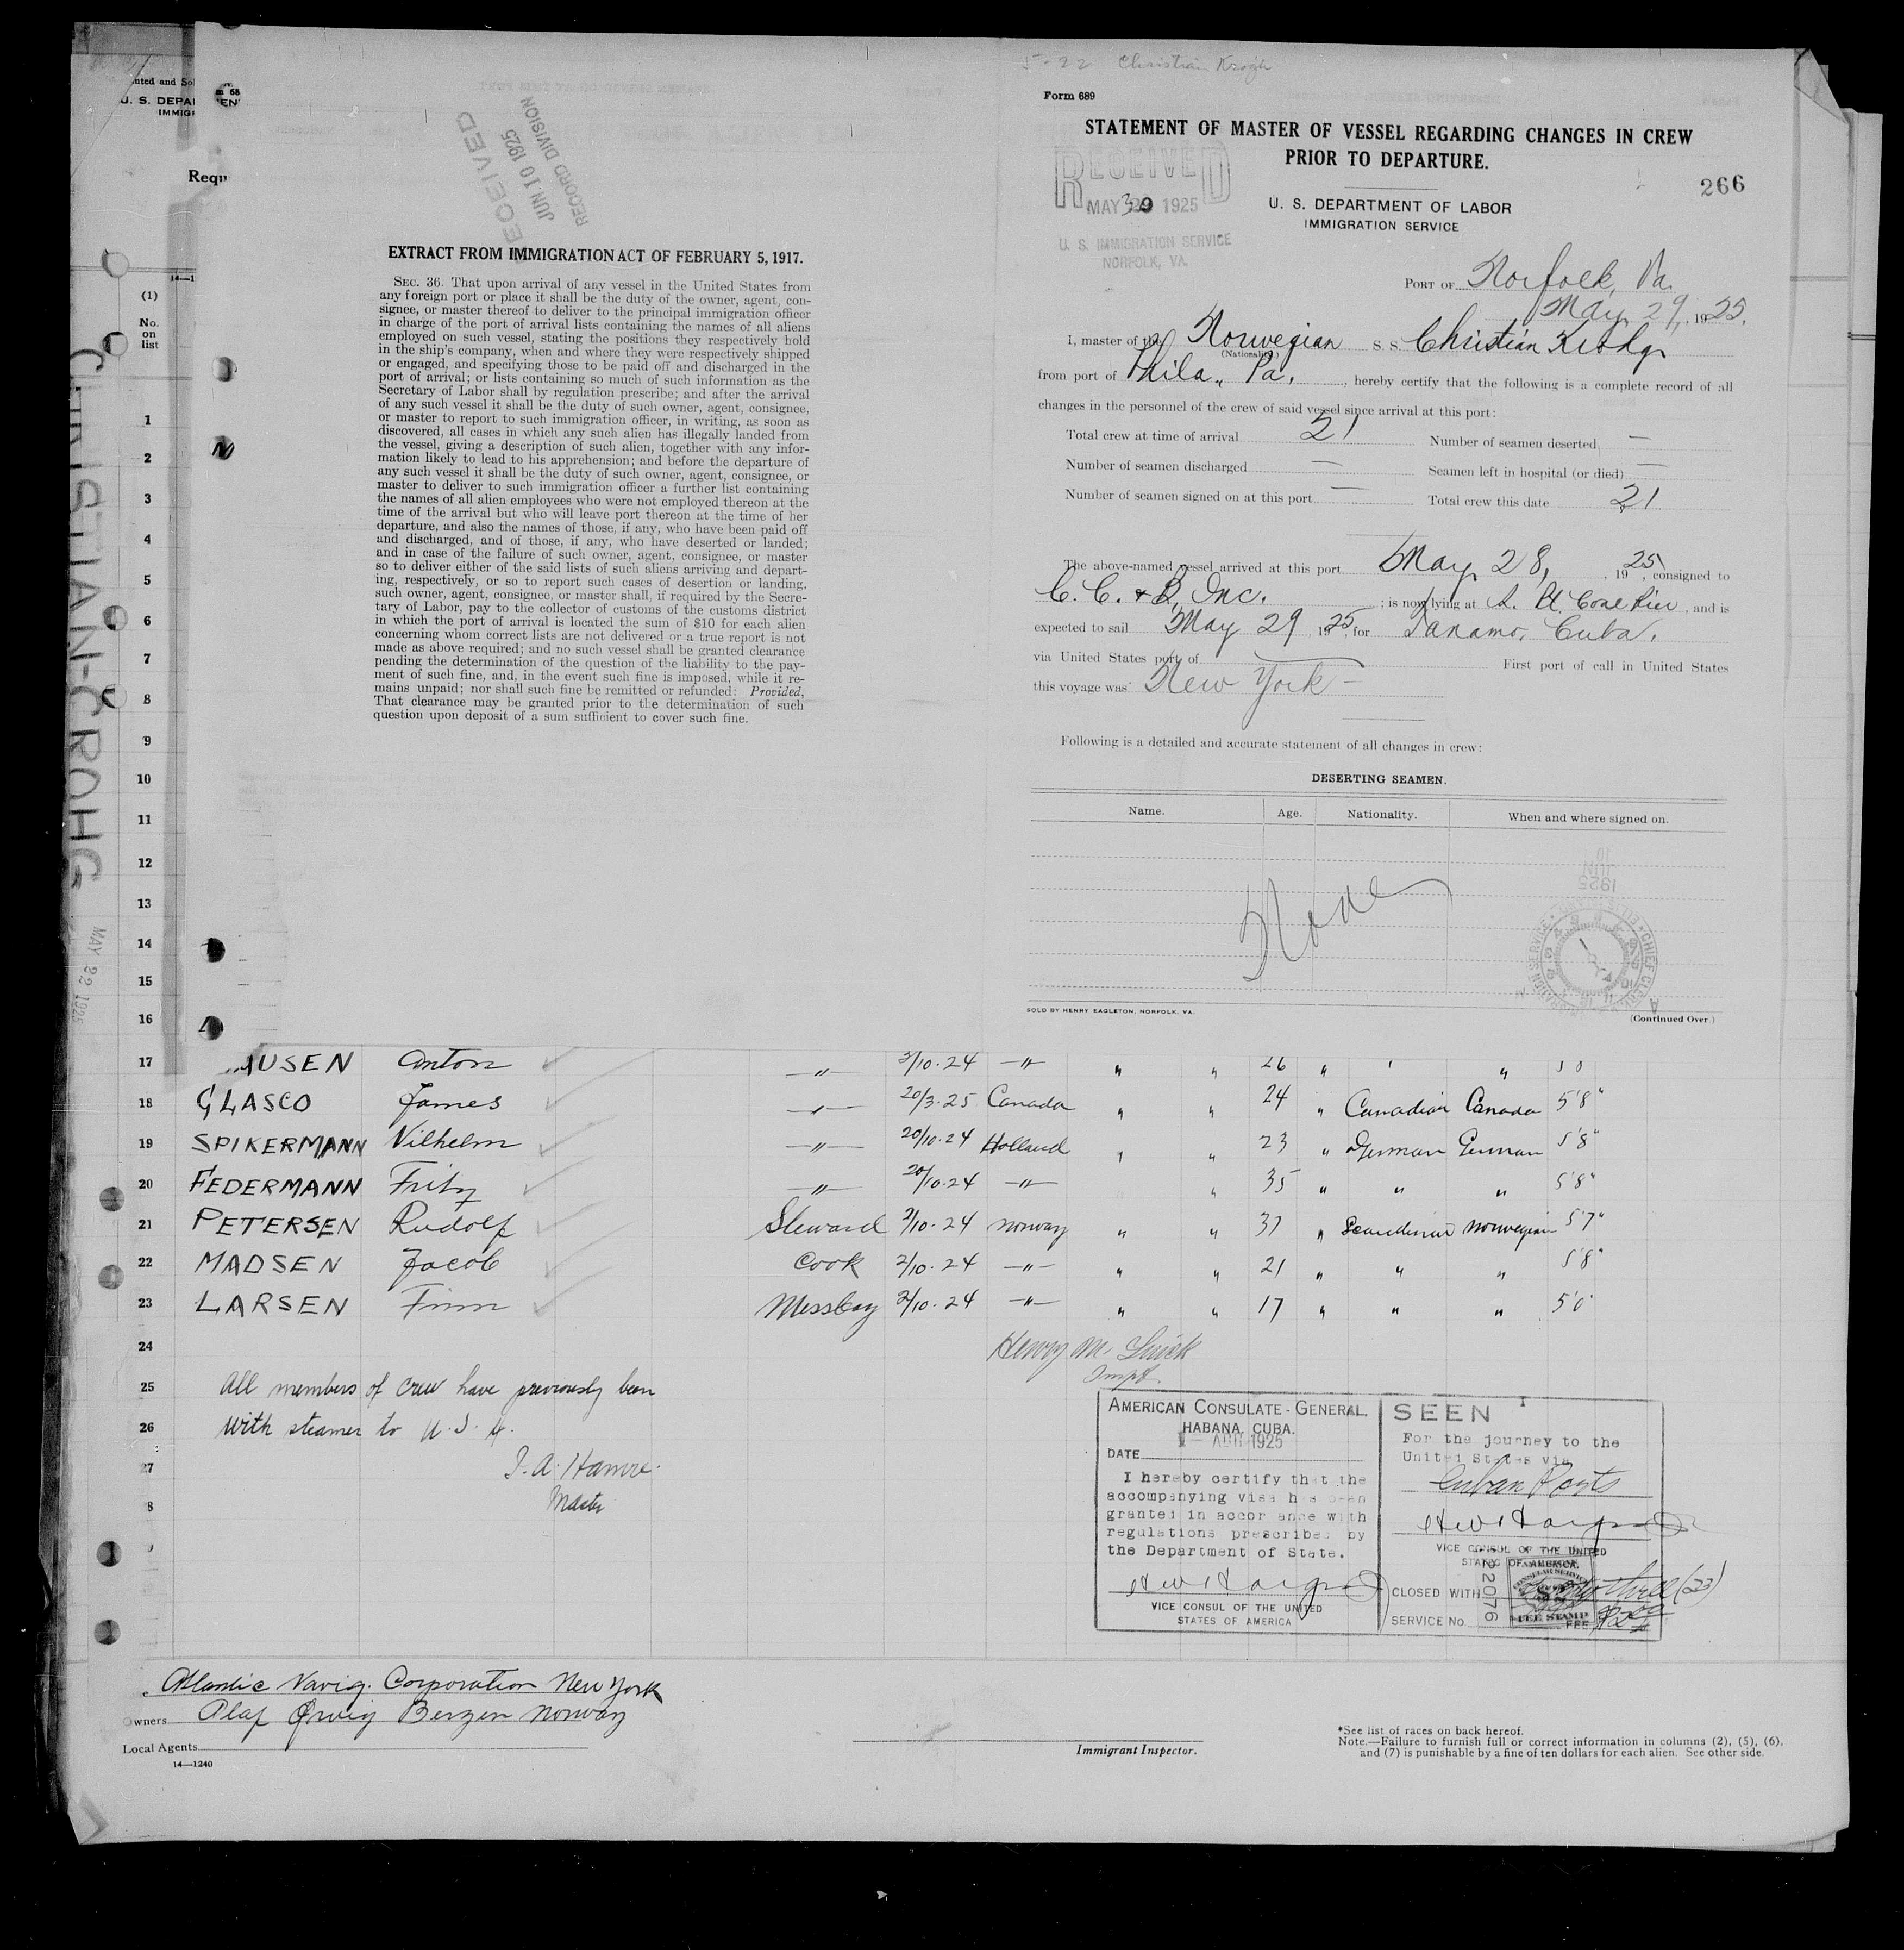 5-22 Christian Krogh
Form 689
STATEMENT OF MASTER OF VESSEL REGARDING CHANGES IN CREW
PRIOR TO DEPARTURE.
266
RECEIVED
MAY 1925
U. S. IMMIGRATION SERVICE
NORFOLK, VA.
U. S. DEPARTMENT OF LABOR
IMMIGRATION SERVICE
PORT OF Norfolk, Va.
May 29, 1925.
I, master of the Norwegian S. S. Christian Krohg
(Nationality.)
from port of Phila., Pa., hereby certify that the following is a complete record of all
changes in the personnel of the crew of said vessel since arrival at this port:
Total crew at time of arrival 21 Number of seamen deserted —
Number of seamen discharged — Seamen left in hospital (or died) —
Number of seamen signed on at this port — Total crew this date 21
The above-named vessel arrived at this port May 28, 1925, consigned to
C. C. & B, Inc. ; is now lying at Coal Pier, and is
expected to sail May 29 1925, for Tanamo, Cuba.
via United States port of — First port of call in United States
this voyage was New York —
Following is a detailed and accurate statement of all changes in crew:
DESERTING SEAMEN.
Name. Age. Nationality. When and where signed on.
None
1925
JUN
10
SOLD BY HENRY EAGLETON, NORFOLK, VA.
(Continued Over.)
RECEIVED
JUN 10 1925
RECORD DIVISION
EXTRACT FROM IMMIGRATION ACT OF FEBRUARY 5, 1917.
SEC. 36. That upon arrival of any vessel in the United States from
any foreign port or place it shall be the duty of the owner, agent, con-
signee, or master thereof to deliver to the principal immigration officer
in charge of the port of arrival lists containing the names of all aliens
employed on such vessel, stating the positions they respectively hold
in the ship's company, when and where they were respectively shipped
or engaged, and specifying those to be paid off and discharged in the
port of arrival; or lists containing so much of such information as the
Secretary of Labor shall by regulation prescribe; and after the arrival
of any such vessel it shall be the duty of such owner, agent, consignee,
or master to report to such immigration officer, in writing, as soon as
discovered, all cases in which any such alien has illegally landed from
the vessel, giving a description of such alien, together with any infor-
mation likely to lead to his apprehension; and before the departure of
any such vessel it shall be the duty of such owner, agent, consignee, or
master to deliver to such immigration officer a further list containing
the names of all alien employees who were not employed thereon at the
time of the arrival but who will leave port thereon at the time of her
departure, and also the names of those, if any, who have been paid off
and discharged, and of those, if any, who have deserted or landed;
and in case of the failure of such owner, agent, consignee, or master
so to deliver either of the said lists of such aliens arriving and depart-
ing, respectively, or so to report such cases of desertion or landing,
such owner, agent, consignee, or master shall, if required by the Secre-
tary of Labor, pay to the collector of customs of the customs district
in which the port of arrival is located the sum of $10 for each alien
concerning whom correct lists are not delivered or a true report is not
made as above required; and no such vessel shall be granted clearance
pending the determination of the question of the liability to the pay-
ment of such fine, and, in the event such fine is imposed, while it re-
mains unpaid; nor shall such fine be remitted or refunded: Provided,
That clearance may be granted prior to the determination of such
question upon deposit of a sum sufficient to cover such fine.
U. S. DEPA
IMMIG
(1)
No.
on
list
CHRISTIAN-CROHG
MAY 22 1925
1
2
3
4
5
6
7
8
9
10
11
12
13
14
15
16
17 AUSEN Anton —"— 2/10.24 —"— " " 26 " " "
18 GLASCO James —"— 20/3.25 Canada " " 24 " Canadian Canada 5'8"
19 SPIKERMANN Vilhelm —"— 20/10.24 Holland " " 23 " German German 5'8"
20 FEDERMANN Fritz —"— 20/10.24 —"— " 35 " " " 5'8"
21 PETERSEN Rudolf Steward 2/10.24 Norway " " 37 " Scandinav Norwegian 5'7"
22 MADSEN Jacob Cook 2/10.24 —"— " " 21 " " " 5'8"
23 LARSEN Finn Messboy 2/10.24 —"— " " 17 " " " 5'6"
24 Henry M.
Inspt.
25 All members of crew have previously been
26 with steamer to U.S.A.
27 J. A. Hamre.
8 Master
AMERICAN CONSULATE-GENERAL
HABANA, CUBA.
DATE 1925
I hereby certify that the
accompanying visa has been
granted in accordance with
regulations prescribed by
the Department of State.
VICE CONSUL OF THE UNITED
STATES OF AMERICA
SEEN
For the journey to the
United States via
Cuban Ports
VICE CONSUL OF THE UNITED
STATES OF AMERICA.
CLOSED WITH twenty three (23)
SERVICE No. 22076
FEE STAMP
FEE
Atlantic Navig. Corporation New York
Owners Olaf Ørvig Bergen Norway
Local Agents
14—1240
Immigrant Inspector.
*See list of races on back hereof.
Note.—Failure to furnish full or correct information in columns (2), (5), (6),
and (7) is punishable by a fine of ten dollars for each alien. See other side.